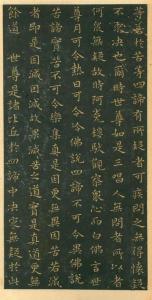 等若於苦等四諦有所疑者可疾問之無得懷疑
不求決也爾時世尊如是三唱人無問者所以者
何眾無疑故時阿㝹樓馱觀察眾心而白佛言世
尊月可令熱日可令冷佛說四諦不可令異佛說
苦諦實苦不可令樂集真是因更無異因苦若滅
者即是因滅因滅故果滅滅苦之道實是真道更無
餘道世尊是諸比丘於四諦中決定無疑於此